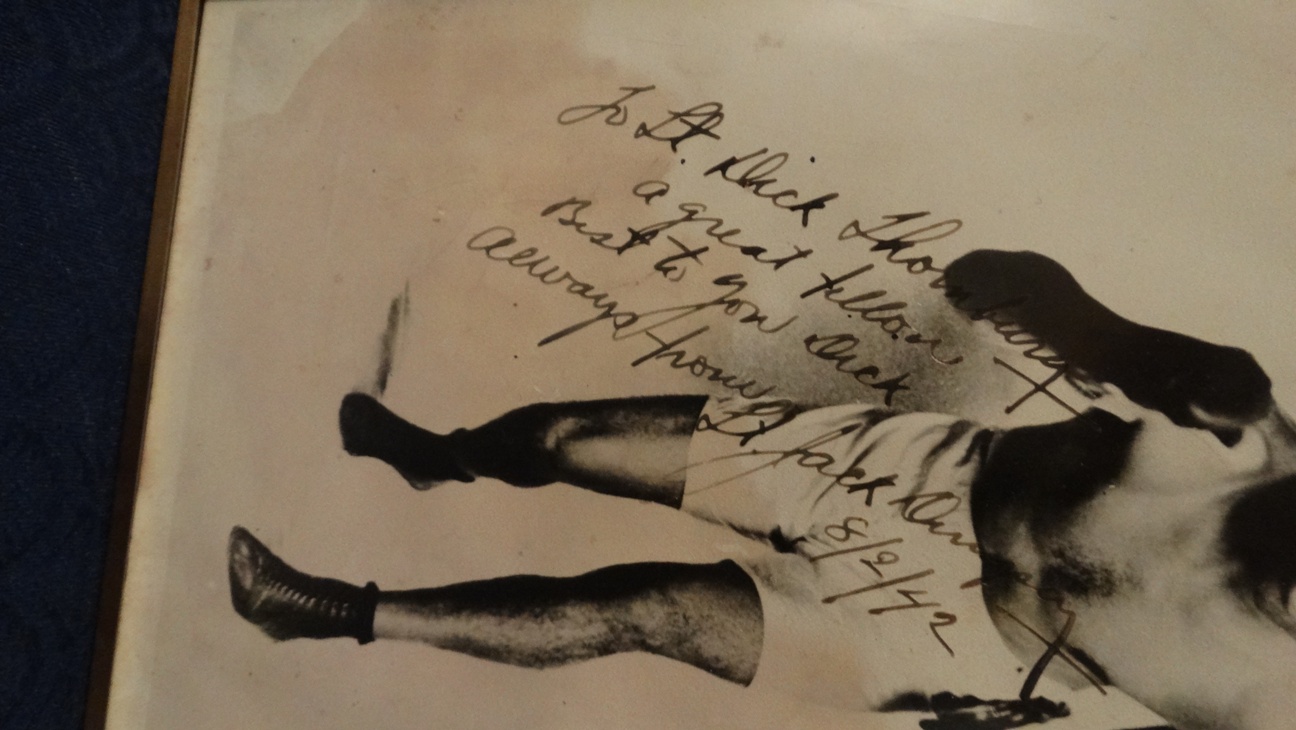 To Lt. Dick Thornburg
a great fellow
Best to you Dick
Always from
Lt. Jack Dempsey
8/2/42